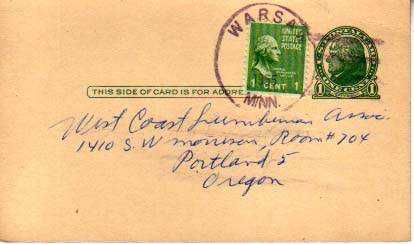 WARSA
MINN.
UNITED
STATES
POSTAGE
1 CENT 1
1 ONE CENT 1
THIS SIDE OF CARD IS FOR ADDRE
West Coast Lumberman Assoc.
1410 S.W Morrison, Room #704
Portland 5
Oregon